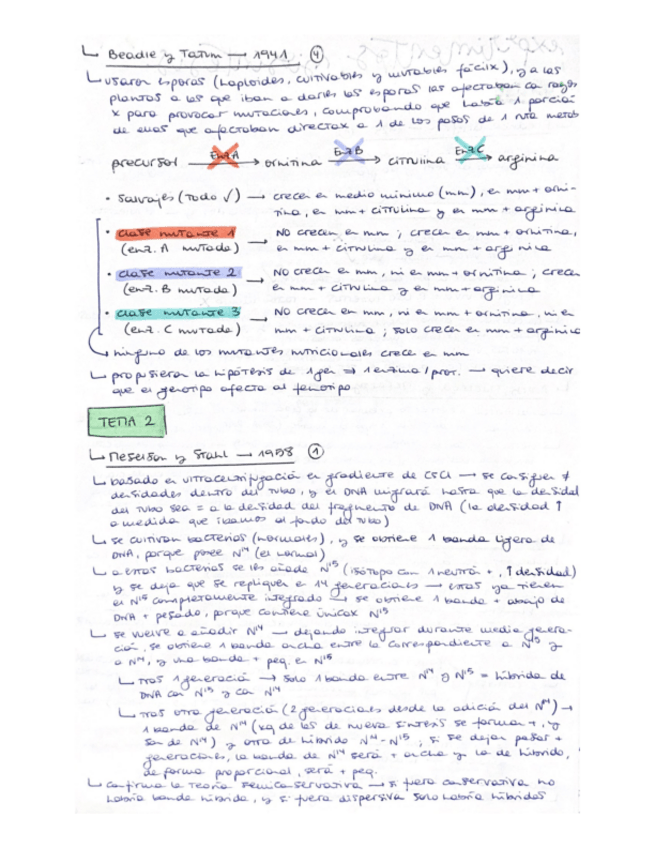 ↳ Beadle y Tatum → 1941 ④
↳ usaron esporas (haploides, cultivables y mutables fácilx), y a las
plantas a las que iban a darles las esporas las afectaban con rayos
x para provocar mutaciones, comprobando que había 1 porción
de ellas que afectaban directax a 1 de los pasos de 1 ruta metab
precursor → Enz A → ornitina → Enz B → citrulina → Enz C → arginina
• salvajes (todo ✓) → crecer en medio mínimo (mm), en mm + orni-
tina, en mm + citrulina y en mm + arginina
• clase mutante 1 → NO crecen en mm; crecen en mm + ornitina,
(enz. A mutada) en mm + citrulina y en mm + arginina
• clase mutante 2 → NO crecen en mm, ni en mm + ornitina; crecen
(enz. B mutada) en mm + citrulina y en mm + arginina
• clase mutante 3 → NO crecen en mm, ni en mm + ornitina, ni en
(enz. C mutada) mm + citrulina; solo crecen en mm + arginina
↳ ninguno de los mutantes nutricionales crece en mm
↳ propusieron la hipótesis de 1 gen ⇒ 1 enzima/prot. → quiere decir
que el genotipo afecta al fenotipo
TEMA 2
↳ Meselson y Stahl → 1958 ①
↳ basado en ultracentrifugación en gradiente de CsCl → se consiguen ≠
densidades dentro del tubo, y el DNA migrará hasta que la densidad
del tubo sea = a la densidad del fragmento de DNA (la densidad ↑
a medida que íbamos al fondo del tubo)
↳ se cultivan bacterias (normales), y se obtiene 1 banda ligera de
DNA, porque posee N14 (el normal)
↳ a estas bacterias se les añade N15 (isótopo con 1 neutrón +, ↑ densidad)
y se deja que se repliquen en 14 generaciones → estas ya tienen
el N15 completamente integrado → se obtiene 1 banda + abajo de
DNA + pesado, porque contiene únicax N15
↳ se vuelve a añadir N14 → dejando integrar durante media genera-
ción, se obtiene 1 banda ancha entre la correspondiente a N15 y
a N14, y una banda + peq. en N15
↳ tras 1 generación → solo 1 banda entre N14 y N15 = híbrida de
DNA con N15 y con N14
↳ tras otra generación (2 generaciones desde la adición del N14) →
1 banda de N14 (xq de las de nueva síntesis se forman +, y
son de N14) y otra de híbrido N14-N15; si se dejan pasar +
generaciones, la banda de N14 será + ancha y la de híbrido,
de forma proporcional, será + peq.
↳ confirma la teoría semiconservativa → si fuera conservativa no
habría banda híbrida, y si fuera dispersiva solo habría híbridos